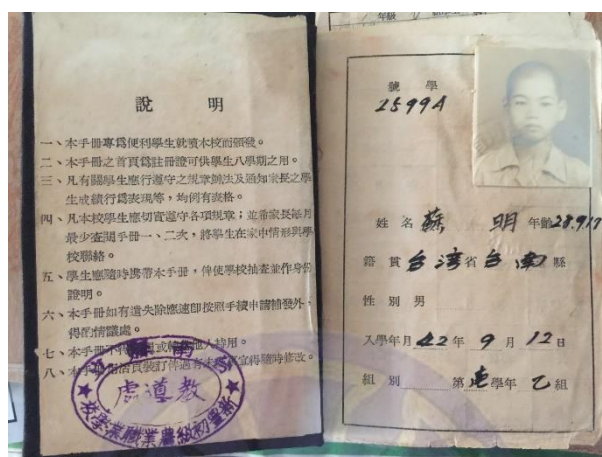 說　明
一、本手冊專爲便利學生就讀本校而頒發。
二、本手冊之首頁爲註冊證可供學生八學期之用。
三、凡有關學生應行遵守之規章辦法及通知家長之學
生成績行爲表現等，均例有表格。
四、凡本校學生應切實遵守各項規章；並希家長每月
最少查閱手冊一、二次，將學生在家中情形與學
校聯絡。
五、學生應隨時携帶本手冊，俾使學校抽查並作身份
證明。
六、本手冊如有遺失除應速即按照手續申請補發外，
得酌情議處。
七、本手冊不得
八、本手冊
宜得隨時修改。
教導處
新豐初級農業職業學校
年級
號　學
2599A
姓名 蘇　明 年齡 28.9.17
籍貫 台湾省台南縣
性別 男
入學年月 42年9月12日
組別　第　學年 乙組